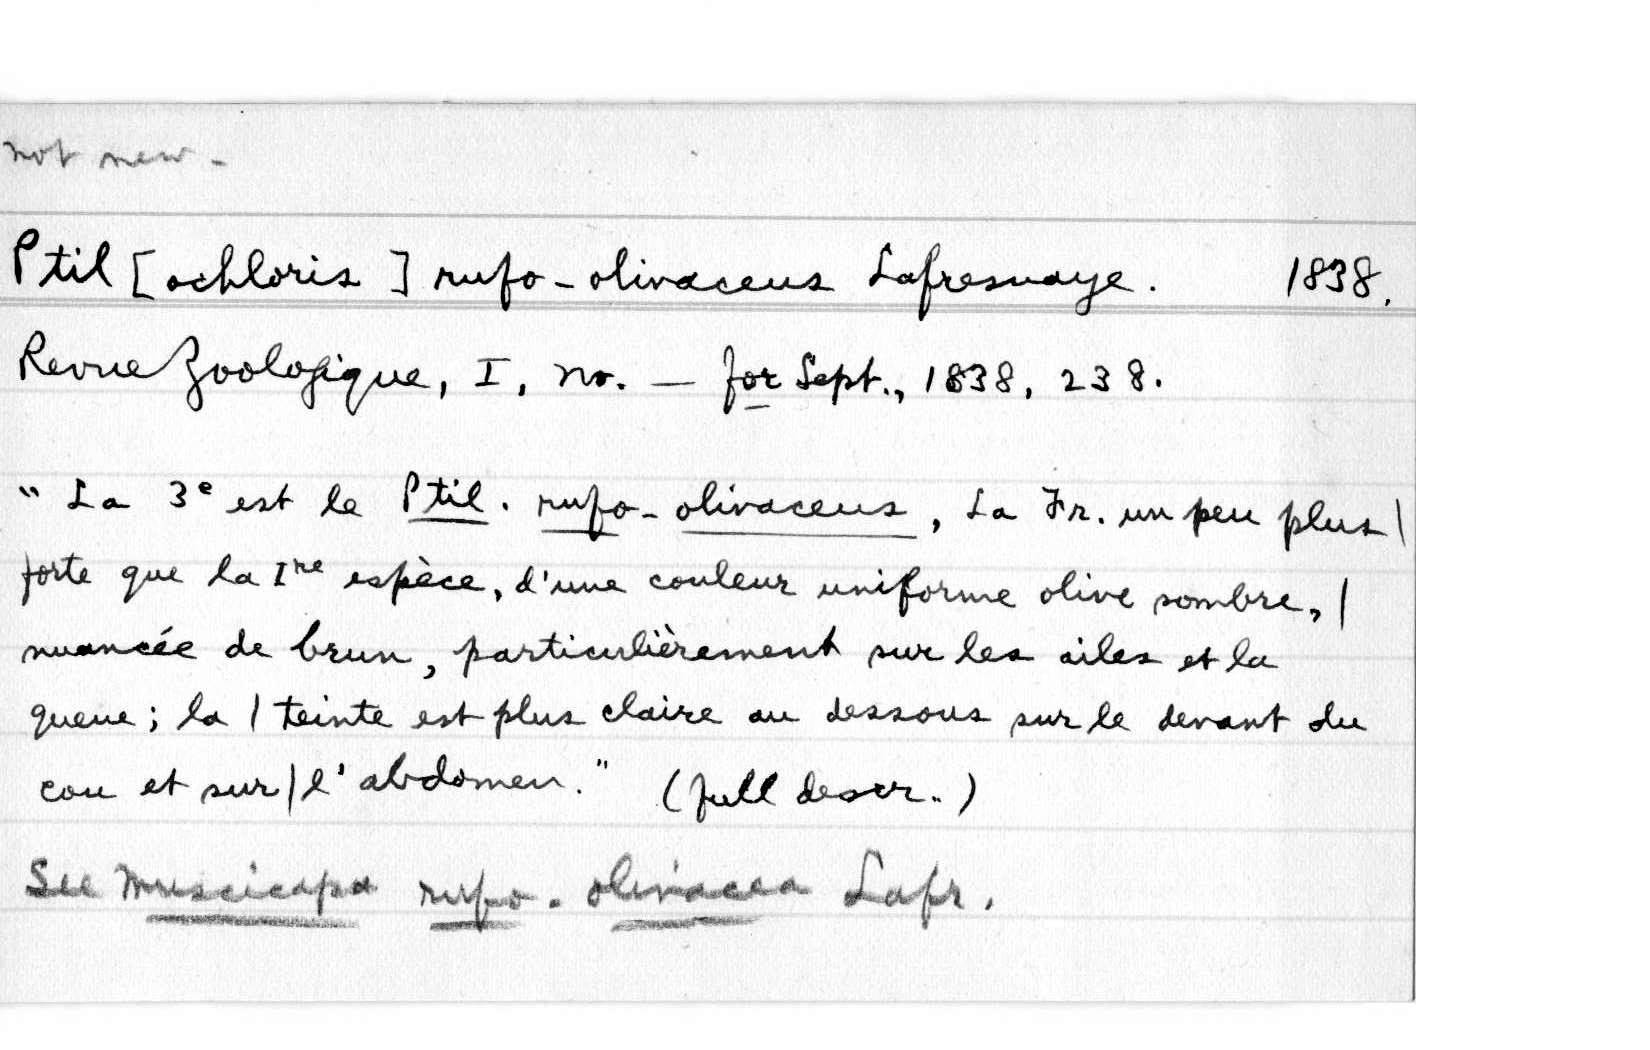 not new -
Ptil [ochloris] rufo-olivaceus Lafresnaye. 1838.
Revue Zoologique, I, no. — for Sept., 1838, 238.
"La 3e est le Ptil. rufo-olivaceus, La Fr. un peu plus |
forte que la Ire espèce, d'une couleur uniforme olive sombre, |
nuancée de brun, particulièrement sur les ailes et la
queue; la | teinte est plus claire au dessous sur le devant du
cou et sur | l'abdomen." (full descr..)
See Muscicapa rufo-olivacea Lafr.